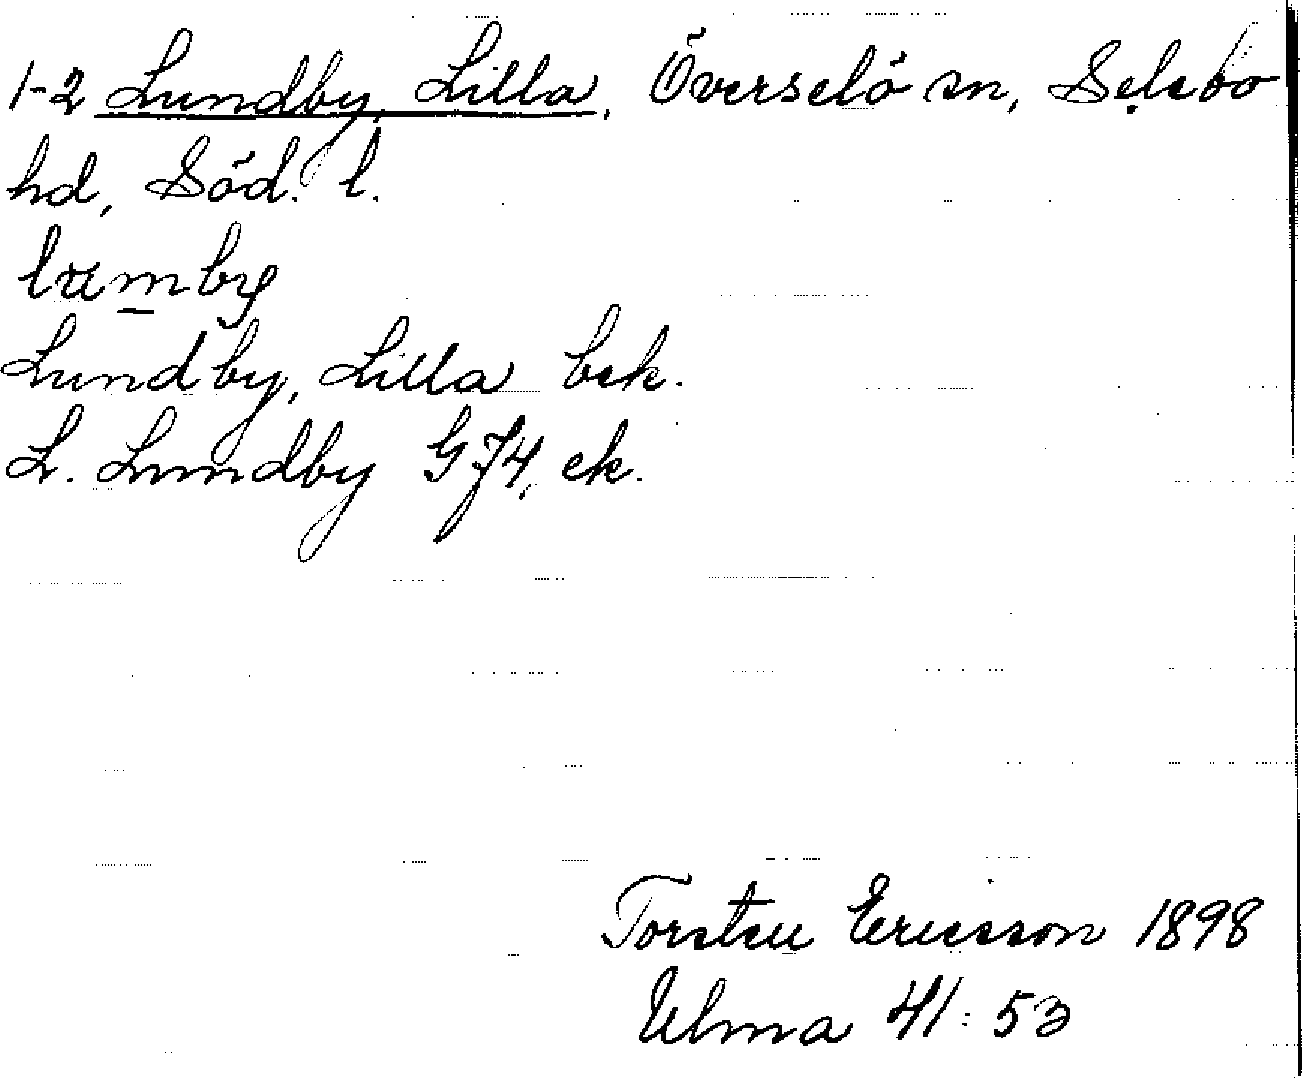 1-2 Lundby, Lilla, Överselö sn, Selebo
hd, Söd. l.
lumby
Lundby, Lilla bek.
L. Lundby GJ4, ek.
Torsten Ericsson 1898
Ulma 41:53